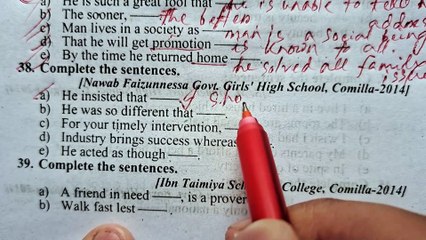 He is such a great fool that he is unable to
b) The sooner, the better
c) Man lives in a society as man is a social being
d) That he will get promotion is known to all.
e) By the time he returned home he solved all family
38. Complete the sentences.
[Nawab Faizunnessa Govt. Girls' High School, Comilla-2014]
a) He insisted that I sho
b) He was so different that
c) For your timely intervention,
d) Industry brings success whereas
e) He acted as though
39. Complete the sentences.
[Ibn Taimiya College, Comilla-2014]
a) A friend in need , is a prover
b) Walk fast lest